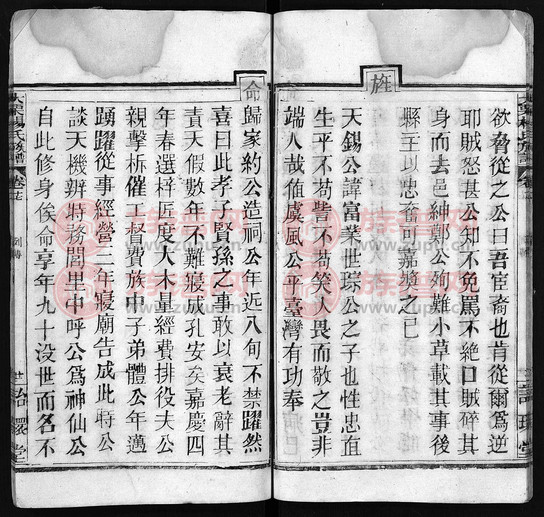 旌
欲脅從之公曰吾宦裔也肯從爾爲逆
耶賊怒甚公知不免罵不絶口賊碎其
身而去邑紳鄭公殉難小草載其事後
縣主以忠奮可嘉獎之已
天錫公諱富業世琮公之子也性忠直
生平不苟訾不苟笑人畏而敬之豈非
端人哉惟虞風公平臺灣有功奉
命
歸家約公造祠公年近八旬不禁躍然
喜曰此孝子賢孫之事敢以衰老辭其
責天假數年不難寢成孔安矣嘉慶四
年春選梓匠度大木量經費排役夫公
親擊柝催工督費族中子弟體公年邁
踴躍從事經營二年寢廟告成此時公
談天機辨時務閭里中呼公爲神仙公
自此修身俟命享年九十没世而名不
卷之廿
列傳
詒
堂
族谱网
www.zupu.cn